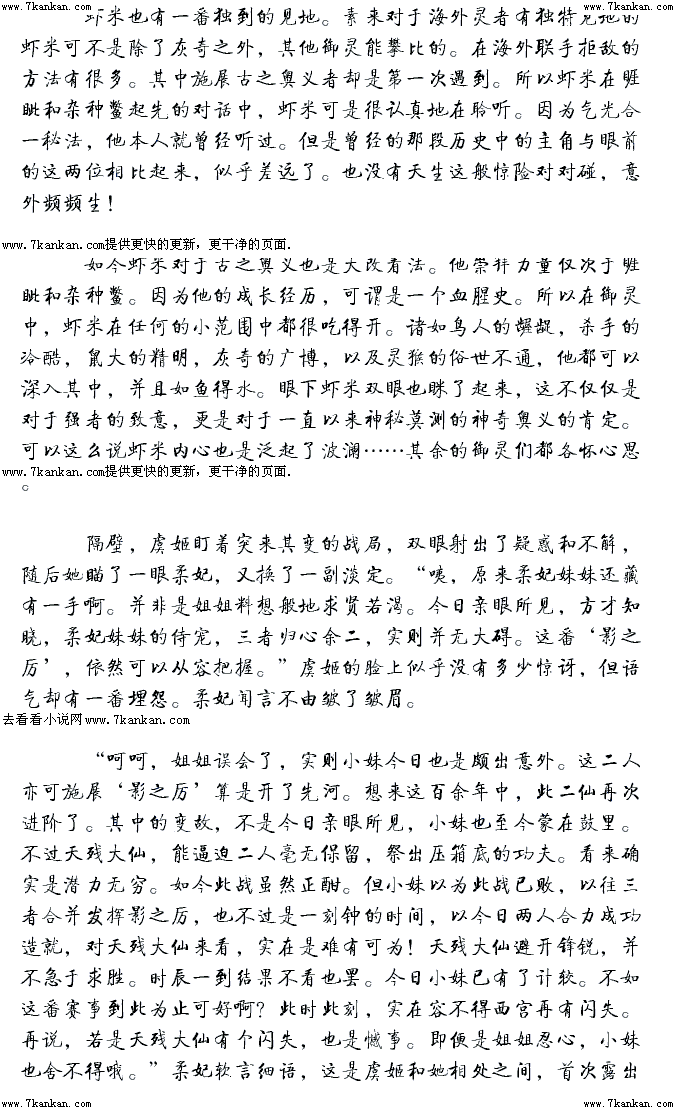 www.7kankan.com www.7kankan.com
虾米也有一番独到的见地。素来对于海外灵者有独特见地的
虾米可不是除了灰奇之外，其他御灵能攀比的。在海外联手拒敌的
方法有很多。其中施展古之奥义者却是第一次遇到。所以虾米在睚
眦和杂种鳖起先的对话中，虾米可是很认真地在聆听。因为气光合
一秘法，他本人就曾经听过。但是曾经的那段历史中的主角与眼前
的这两位相比起来，似乎差远了。也没有天生这般惊险对对碰，意
外频频生！
www.7kankan.com提供更快的更新，更干净的页面.
如今虾米对于古之奥义也是大改看法。他崇拜力量仅次于睚
眦和杂种鳖。因为他的成长经历，可谓是一个血腥史。所以在御灵
中，虾米在任何的小范围中都很吃得开。诸如鸟人的龌龊，杀手的
冷酷，鼠大的精明，灰奇的广博，以及灵猴的俗世不通，他都可以
深入其中，并且如鱼得水。眼下虾米双眼也眯了起来，这不仅仅是
对于强者的致意，更是对于一直以来神秘莫测的神奇奥义的肯定。
可以这么说虾米内心也是泛起了波澜……其余的御灵们都各怀心思
www.7kankan.com提供更快的更新，更干净的页面.
。
隔壁，虞姬盯着突来其变的战局，双眼射出了疑惑和不解，
随后她瞄了一眼柔妃，又换了一副淡定。“咦，原来柔妃妹妹还藏
有一手啊。并非是姐姐料想般地求贤若渴。今日亲眼所见，方才知
晓，柔妃妹妹的侍宠，三者归心余二，实则并无大碍。这番‘影之
厉’，依然可以从容把握。”虞姬的脸上似乎没有多少惊讶，但语
气却有一番埋怨。柔妃闻言不由皱了皱眉。
去看看小说网www.7kankan.com
“呵呵，姐姐误会了，实则小妹今日也是颇出意外。这二人
亦可施展‘影之厉’算是开了先河。想来这百余年中，此二仙再次
进阶了。其中的变故，不是今日亲眼所见，小妹也至今蒙在鼓里。
不过天残大仙，能逼迫二人毫无保留，祭出压箱底的功夫。看来确
实是潜力无穷。如今此战虽然正酣。但小妹以为此战已败，以往三
者合并发挥影之厉，也不过是一刻钟的时间，以今日两人合力成功
造就，对天残大仙来看，实在是难有可为！天残大仙避开锋锐，并
不急于求胜。时辰一到结果不看也罢。今日小妹已有了计较。不如
这番赛事到此为止可好啊？此时此刻，实在容不得西宫再有闪失。
再说，若是天残大仙有个闪失，也是憾事。即便是姐姐忍心，小妹
也舍不得哦。”柔妃软言细语，这是虞姬和她相处之间，首次露出
www.7kankan.com www.7kankan.com